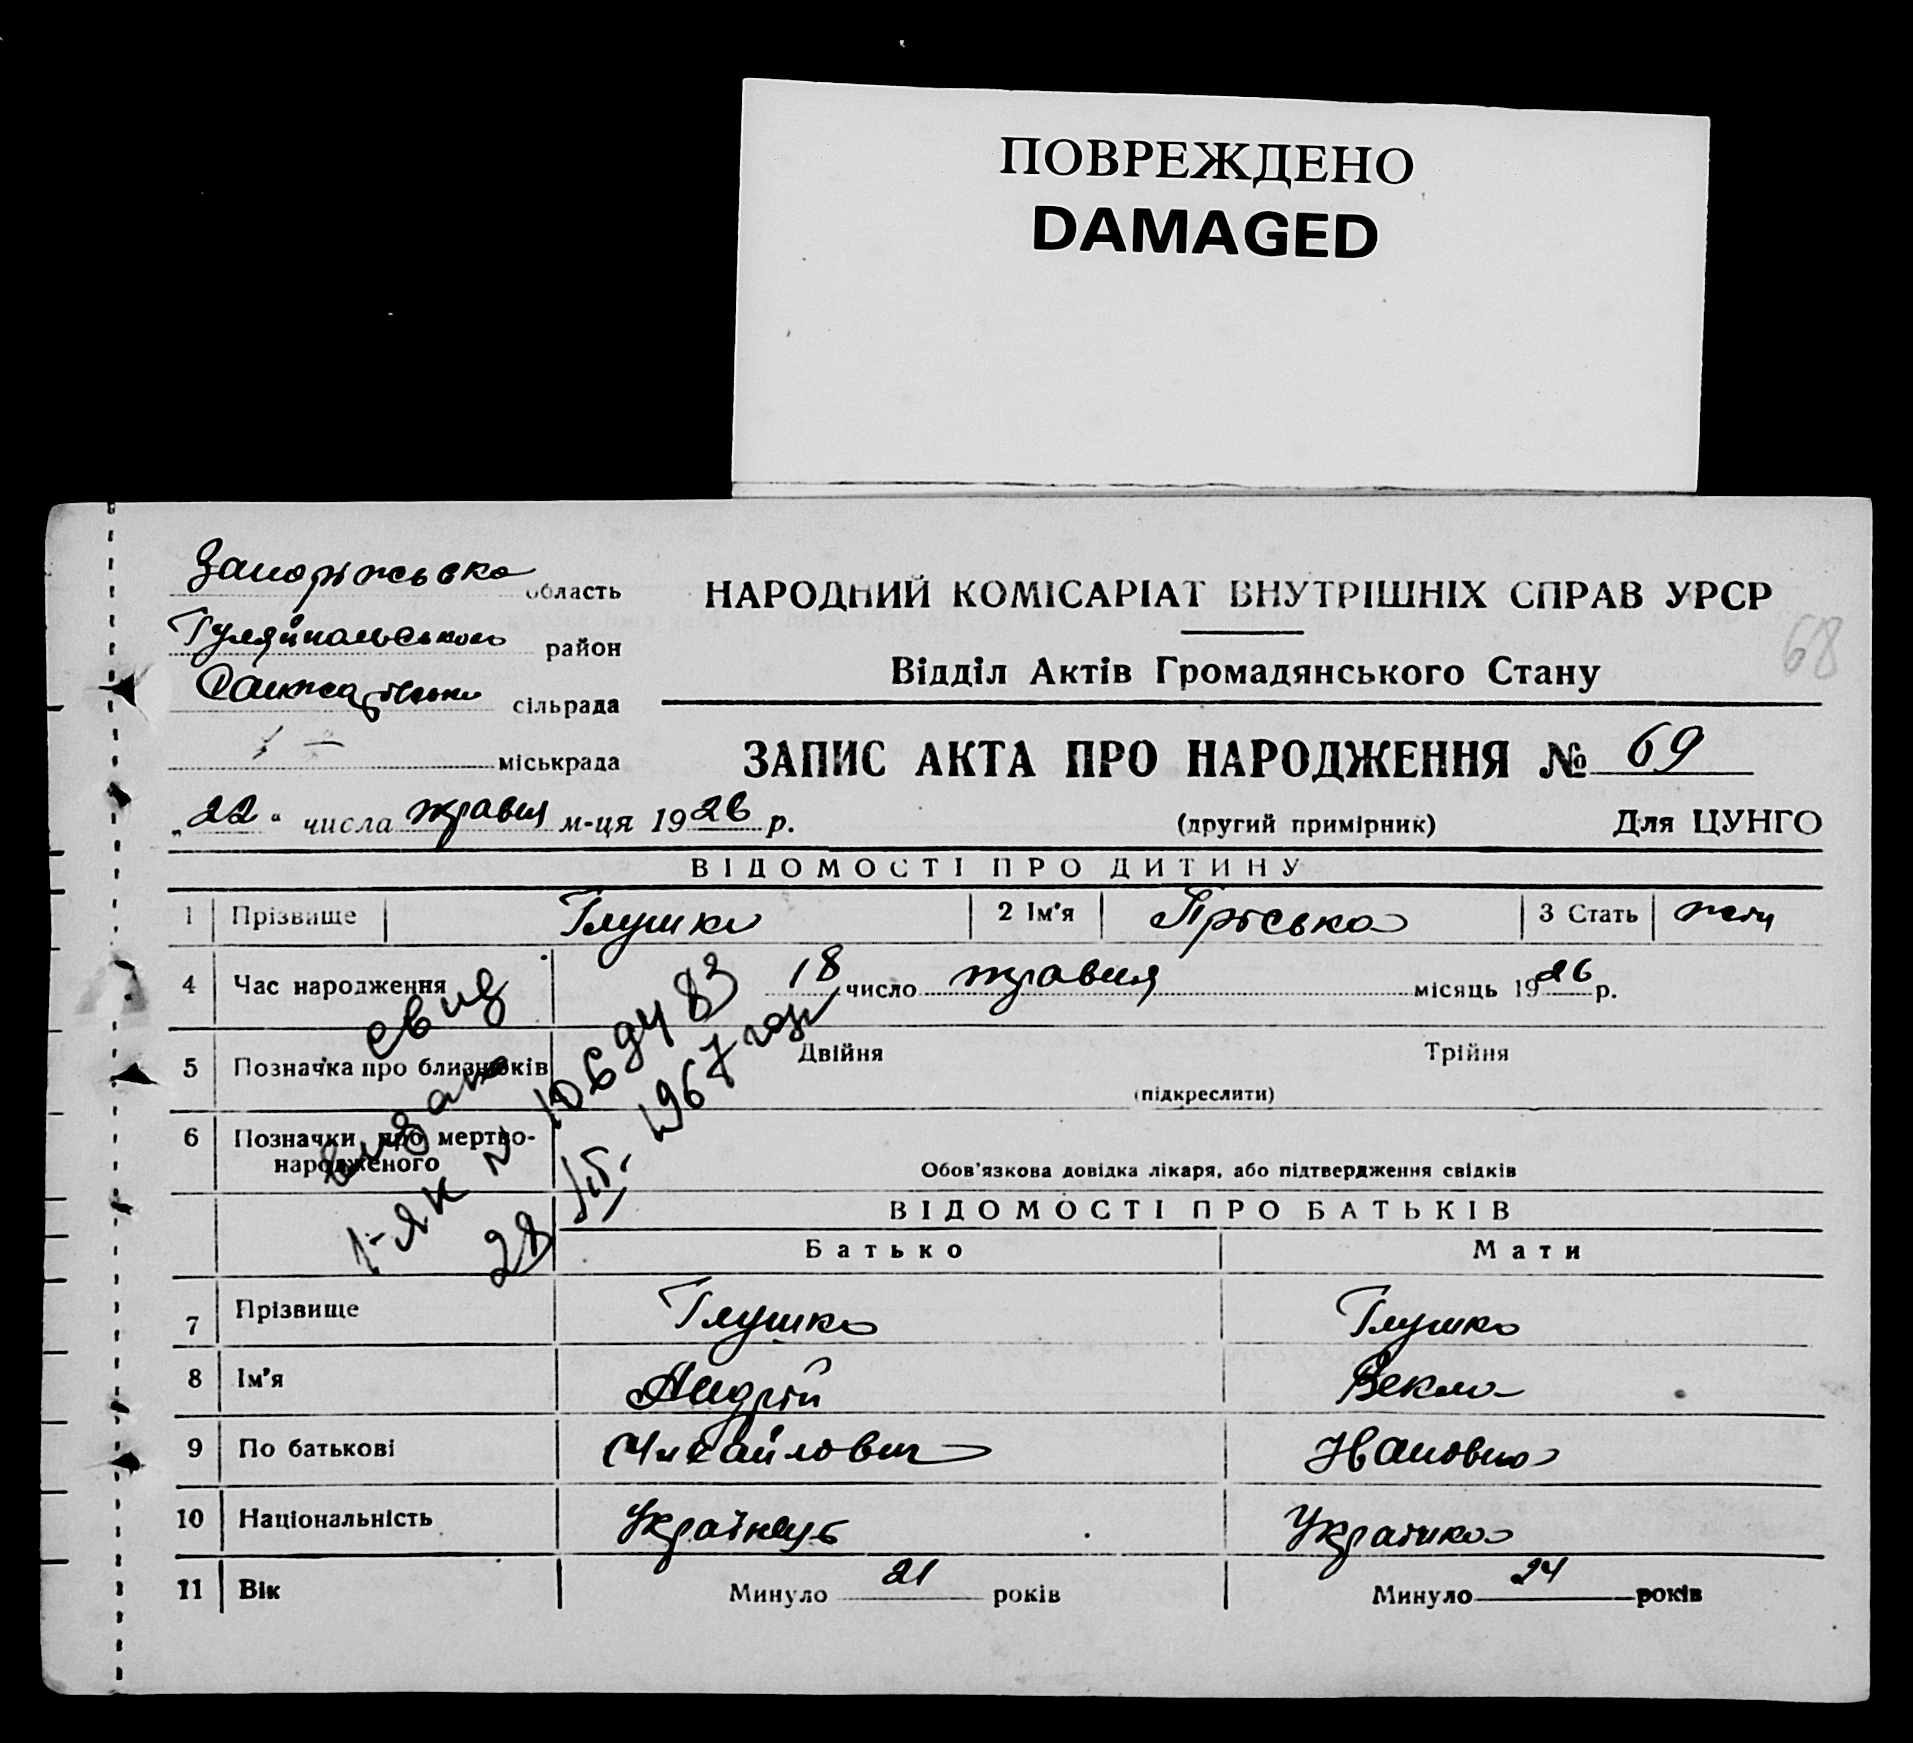 ПОВРЕЖДЕНО
DAMAGED
Запоріжська область
Гуляйпольського район
сільрада
— міськрада
НАРОДНИЙ КОМІСАРІАТ ВНУТРІШНІХ СПРАВ УРСР
68
Відділ Актів Громадянського Стану
ЗАПИС АКТА ПРО НАРОДЖЕННЯ № 69
„22“ числа травня м-ця 1926 р.
(другий примірник) Для ЦУНГО
ВІДОМОСТІ ПРО ДИТИНУ
1 Прізвище Глушко 2 Ім'я Пріська 3 Стать жін
4 Час народження 18 число травня місяць 1926 р.
5 Позначка про близнюків Двійня Трійня
(підкреслити)
6 Позначки про мертво-
народженого
Обов'язкова довідка лікаря, або підтвердження свідків
выдано свид
І-ЯК № 106
28 1967 года
ВІДОМОСТІ ПРО БАТЬКІВ
Батько Мати
7 Прізвище Глушко Глушко
8 Ім'я Андрій Векла
9 По батькові Михайлович Івановна
10 Національність Українець Українка
11 Вік Минуло 21 років Минуло 24 років